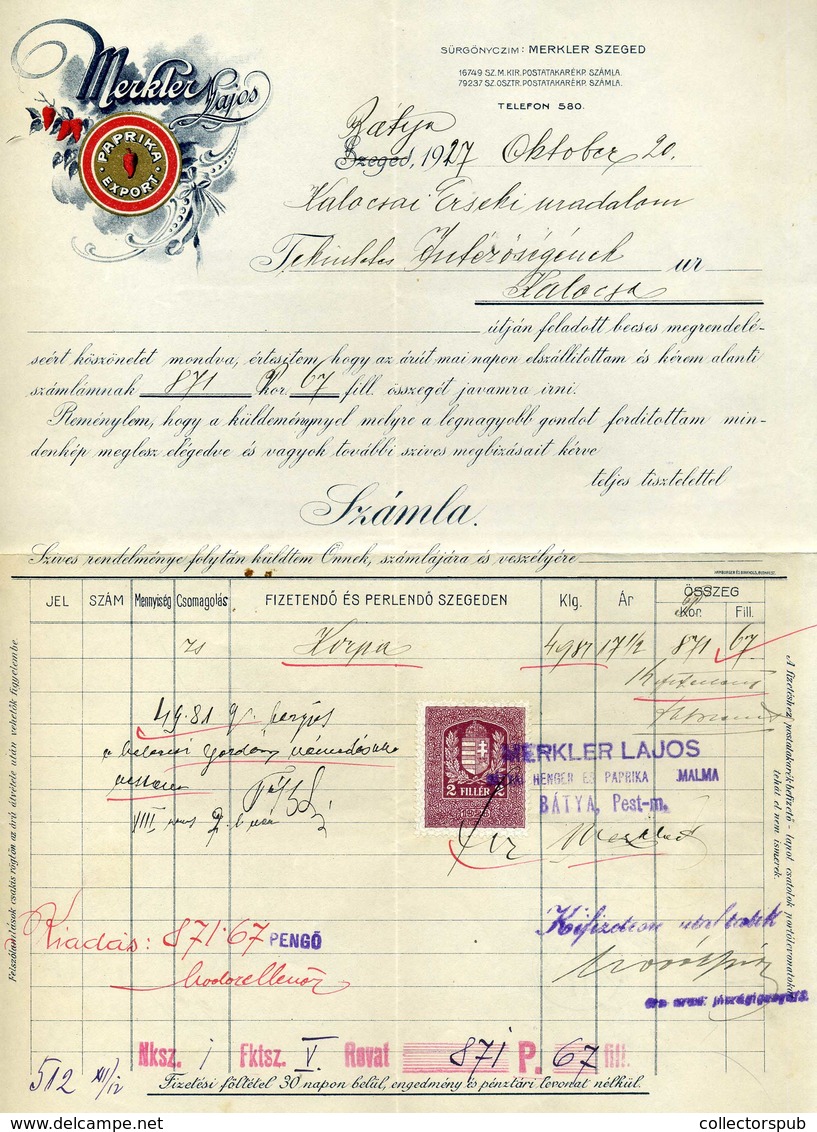 Merkler Lajos
PAPRIKA EXPORT
SÜRGÖNYCZIM: MERKLER SZEGED
16749 SZ. M. KIR. POSTATAKARÉKP. SZÁMLA.
79237 SZ. OSZTR. POSTATAKARÉKP. SZÁMLA.
TELEFON 580.
Bátya
Szeged, 1927 Oktober 20.
Kalocsai Érseki uradalom
Tekintetes Intézőségének ur
Kalocsa
útján feladott becses megrendelé-
seért köszönetet mondva, értesitem, hogy az árút mai napon elszállitottam és kérem alanti
számlámnak 871 P Kor. 67 fill. összegét javamra irni.
Reménylem, hogy a küldeménnyel melyre a legnagyobb gondot forditottam min-
denkép meglesz elégedve és vagyok további szives megbizásait kérve
teljes tisztelettel
Számla.
Szives rendelménye folytán küldtem Önnek, számlájára és veszélyére
JEL SZÁM Mennyiség Csomagolás FIZETENDŐ ÉS PERLENDŐ SZEGEDEN Klg. Ár ÖSSZEG
Kor. Fill.
zs Korpa 4981 17 1/2 871 67
49.81 q.
MERKLER LAJOS
HENGER ÉS PAPRIKA MALMA
BÁTYA, Pest-m.
2 FILLÉR 2
VIII
Kiadás: 871.67 PENGŐ
Nksz. 1 Fktsz. V. Rovat 871 P. 67 fill.
512 XII/12
Fizetési föltétel 30 napon belül, engedmény és pénztári levonat nélkül.
Felszólamlások csakis rögtön az árú átvétele után vehetők figyelembe.
A fizetéshez postatakarékbefizető-lapot csatolok portólevonatokat
tehát el nem ismerek.
collectorspub